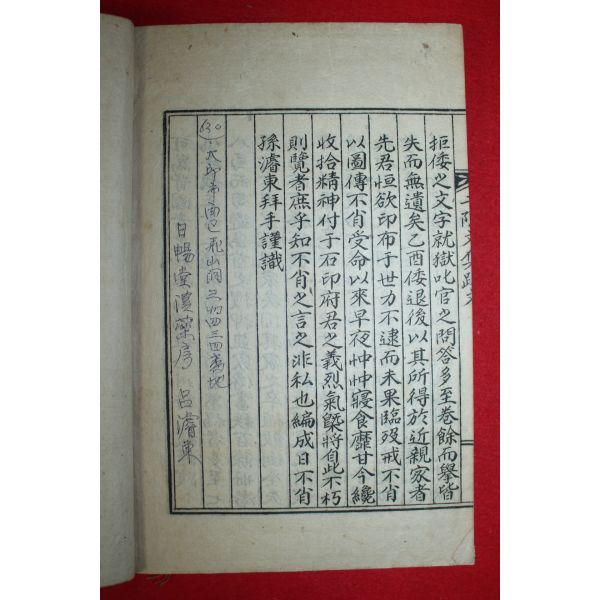 拒倭之文字就獄叱官之問答多至卷餘而擧皆
失而無遺矣乙酉倭退後以其所得於近親家者
先君恒欲印布于世力不逮而未果臨歿戒不肖
以圖傳不肖受命以來早夜忡忡寢食靡甘今纔
收拾精神付于石印府君之義烈氣槩將自此不朽
則覽者庶乎知不肖之言之非私也編成日不肖
孫濬東拜手謹識
(630)大邱市
日暢堂漢藥房 呂濬東